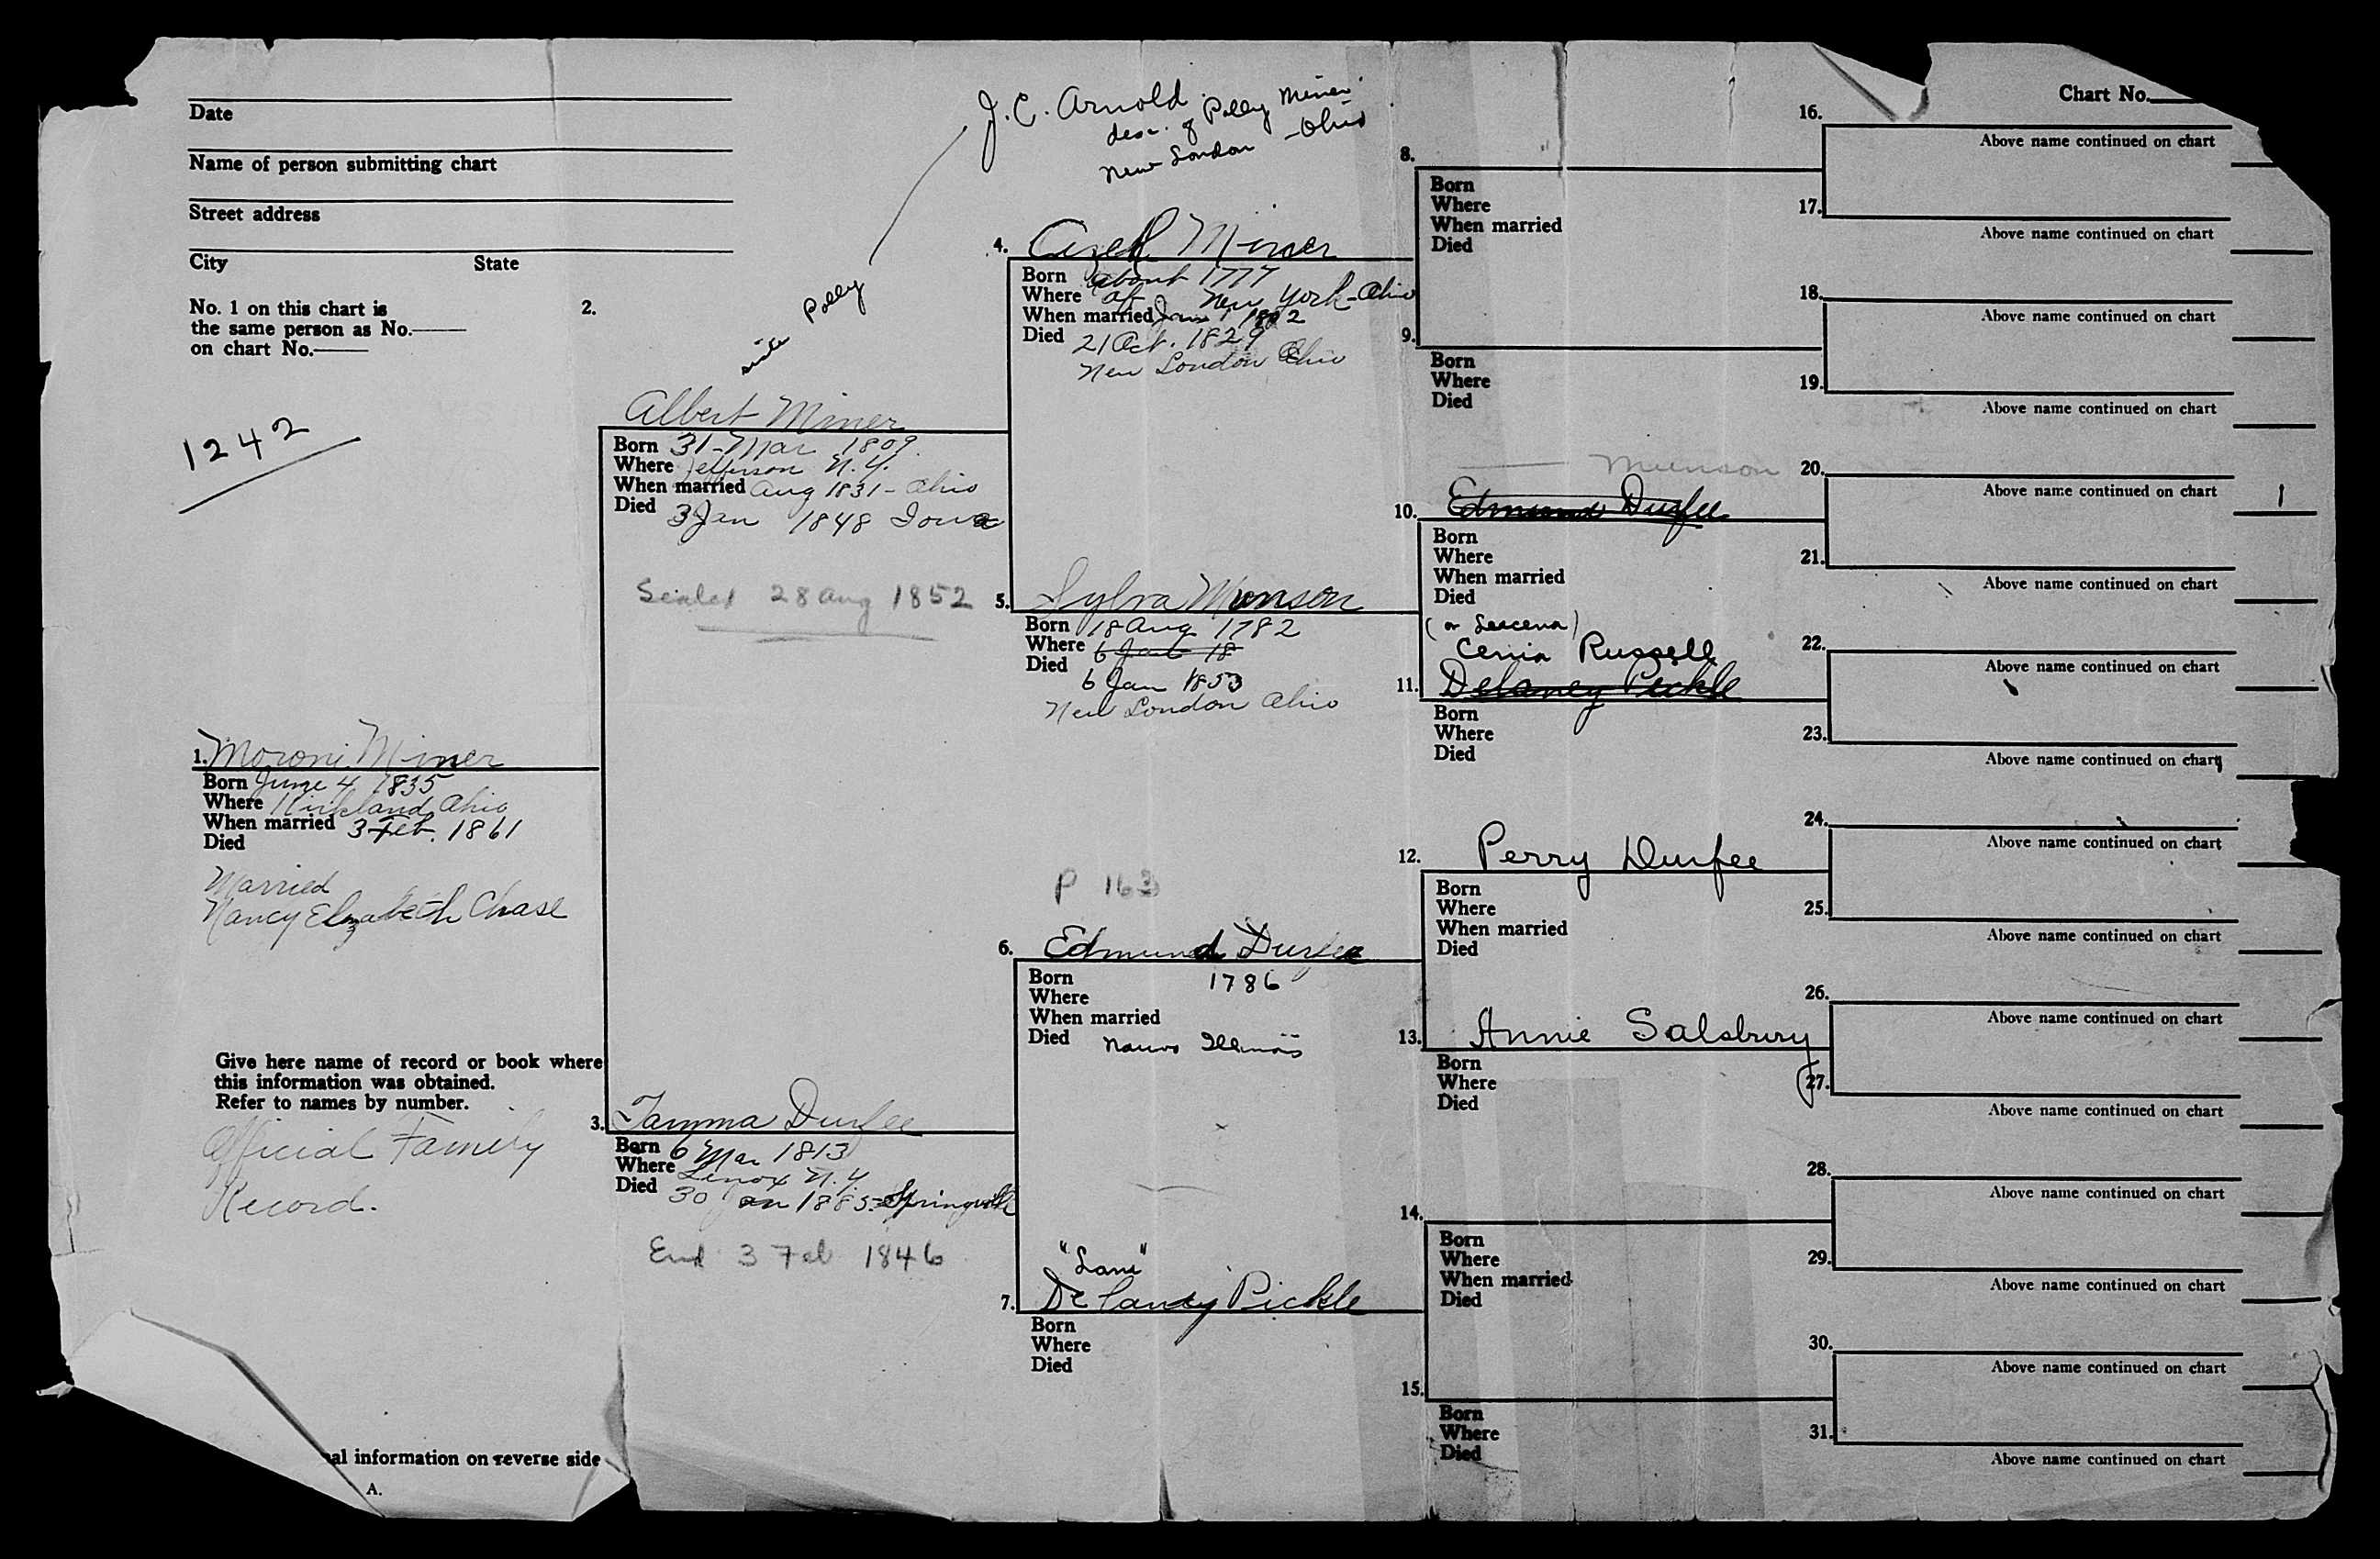 Date
Name of person submitting chart
Street address
City State
No. 1 on this chart is
the same person as No.
on chart No.
1242
J. C. Arnold
desc. of Polly Miner
New London - Ohio
sister Polly
Chart No.
1. Moroni Miner
Born June 4 1835
Where Kirkland Ohio
When married 3 Feb. 1861
Died
Married
Nancy Elizabeth Chase
Give here name of record or book where
this information was obtained.
Refer to names by number.
Official Family
Record.
al information on reverse side
A.
2.
Albert Miner
Born 31 - Mar 1809.
Where Jefferson N.Y.
When married Aug 1831 - Ohio
Died 3 Jan 1848 Iowa
Sealed 28 Aug 1852
3. Tamma Durfee
Born 6 Mar 1813
Where Lenox N.Y.
Died 30 Jan 1885 - Springville
End 3 Feb 1846
4. Azel Miner
Born About 1777
Where of New York - Ohio
When married Jan 1 1802
Died 21 Oct. 1829
New London Ohio
5. Sylva Munson
Born 18 Aug 1782
Where 6 18
Died
6 Jan 1853
New London Ohio
P 163
6. Edmund Durfee
Born 1786
Where
When married
Died Nauvo Illinois
"Lani"
7. Delaney Pickle
Born
Where
Died
8.
Born
Where
When married
Died
9.
Born
Where
Died
Munson
10. Edmund Durfee
Born
Where
When married
Died
(or )
Cenia Russell
11. Delaney Pickle
Born
Where
Died
12. Perry Durfee
Born
Where
When married
Died
13. Annie Salsbury
Born
Where
Died
14.
Born
Where
When married
Died
15.
Born
Where
Died
16.
Above name continued on chart
17.
Above name continued on chart
18.
Above name continued on chart
19.
Above name continued on chart
20.
Above name continued on chart
21.
Above name continued on chart
22.
Above name continued on chart
23.
Above name continued on chart
24.
Above name continued on chart
25.
Above name continued on chart
26.
Above name continued on chart
27.
Above name continued on chart
28.
Above name continued on chart
29.
Above name continued on chart
30.
Above name continued on chart
31.
Above name continued on chart